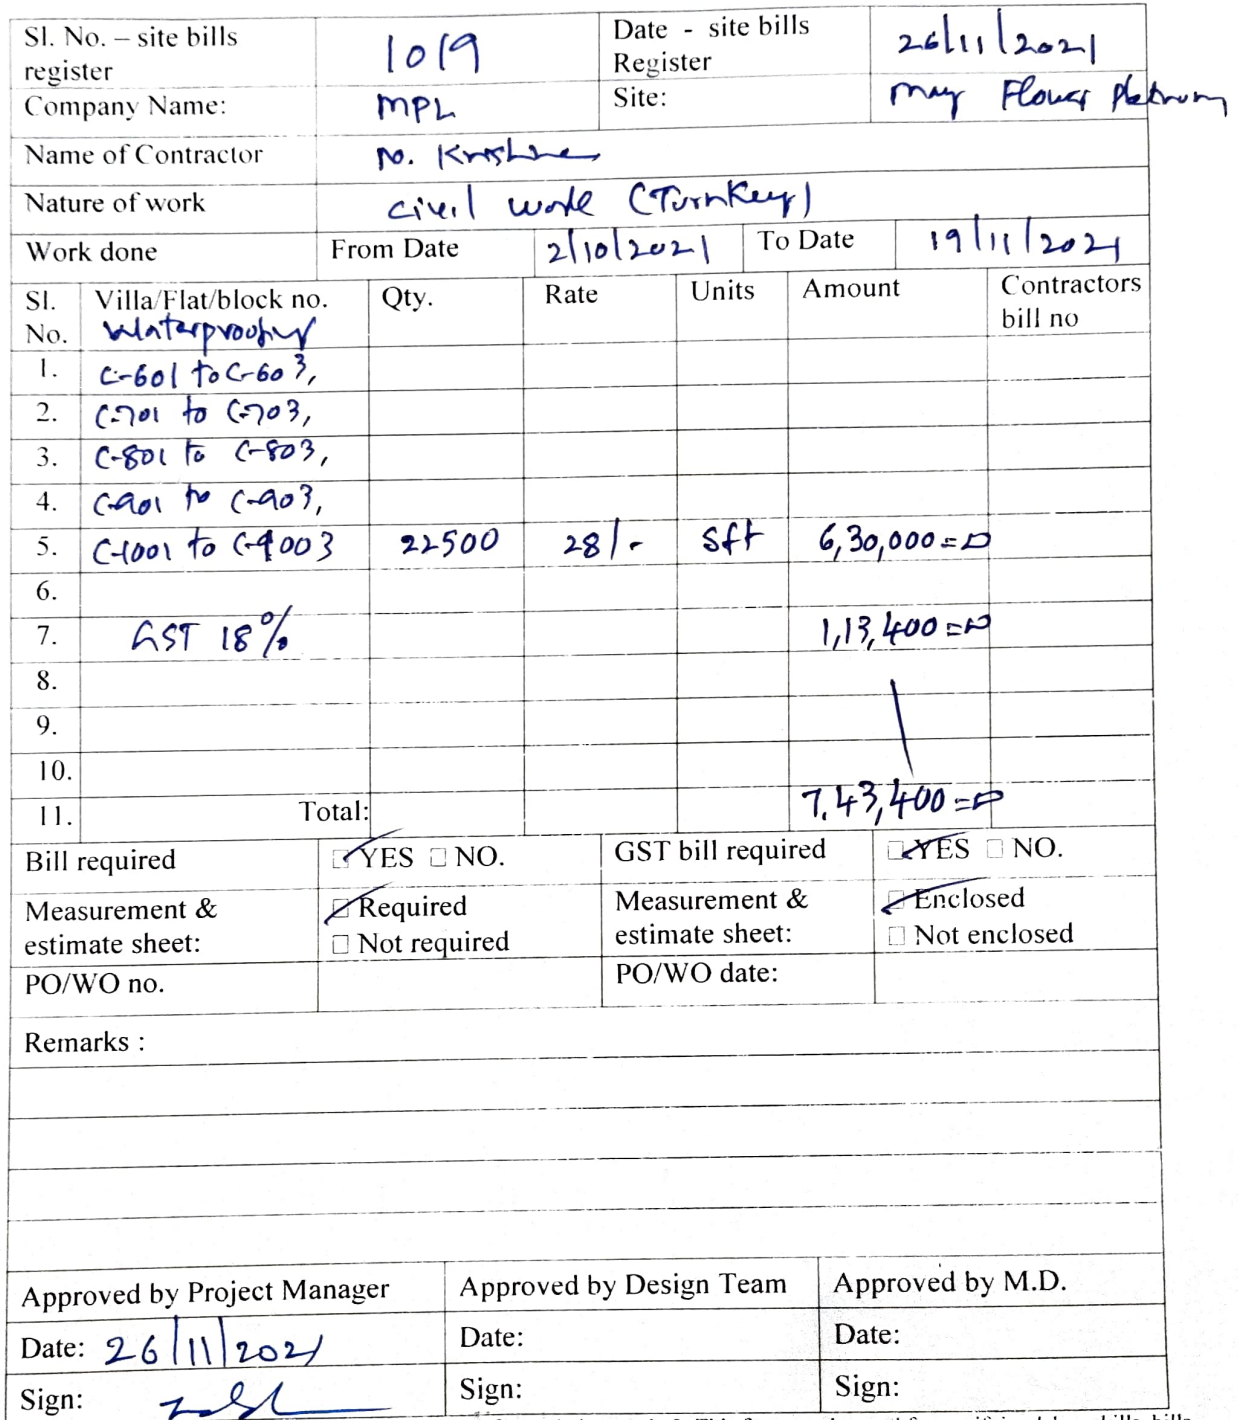 Sl. No. – site bills register 1019 Date - site bills Register 26/11/2021
Company Name: MPL Site: May Flower Platinum
Name of Contractor N. Krishna
Nature of work Civil work (Turnkey)
Work done From Date 2/10/2021 To Date 19/11/2021
Sl. No. Villa/Flat/block no. Qty. Rate Units Amount Contractors bill no
Waterproofing
1. C-601 to C-603,
2. C-701 to C-703,
3. C-801 to C-803,
4. C-901 to C-903,
5. C-1001 to C-1003 22500 28/- Sft 6,30,000=00
6.
7. GST 18% 1,13,400=00
8.
9.
10.
11. Total: 7,43,400=00
Bill required YES NO. GST bill required YES NO.
Measurement & estimate sheet: Required Not required Measurement & estimate sheet: Enclosed Not enclosed
PO/WO no. PO/WO date:
Remarks :
Approved by Project Manager Approved by Design Team Approved by M.D.
Date: 26/11/2021 Date: Date:
Sign: Sign: Sign: